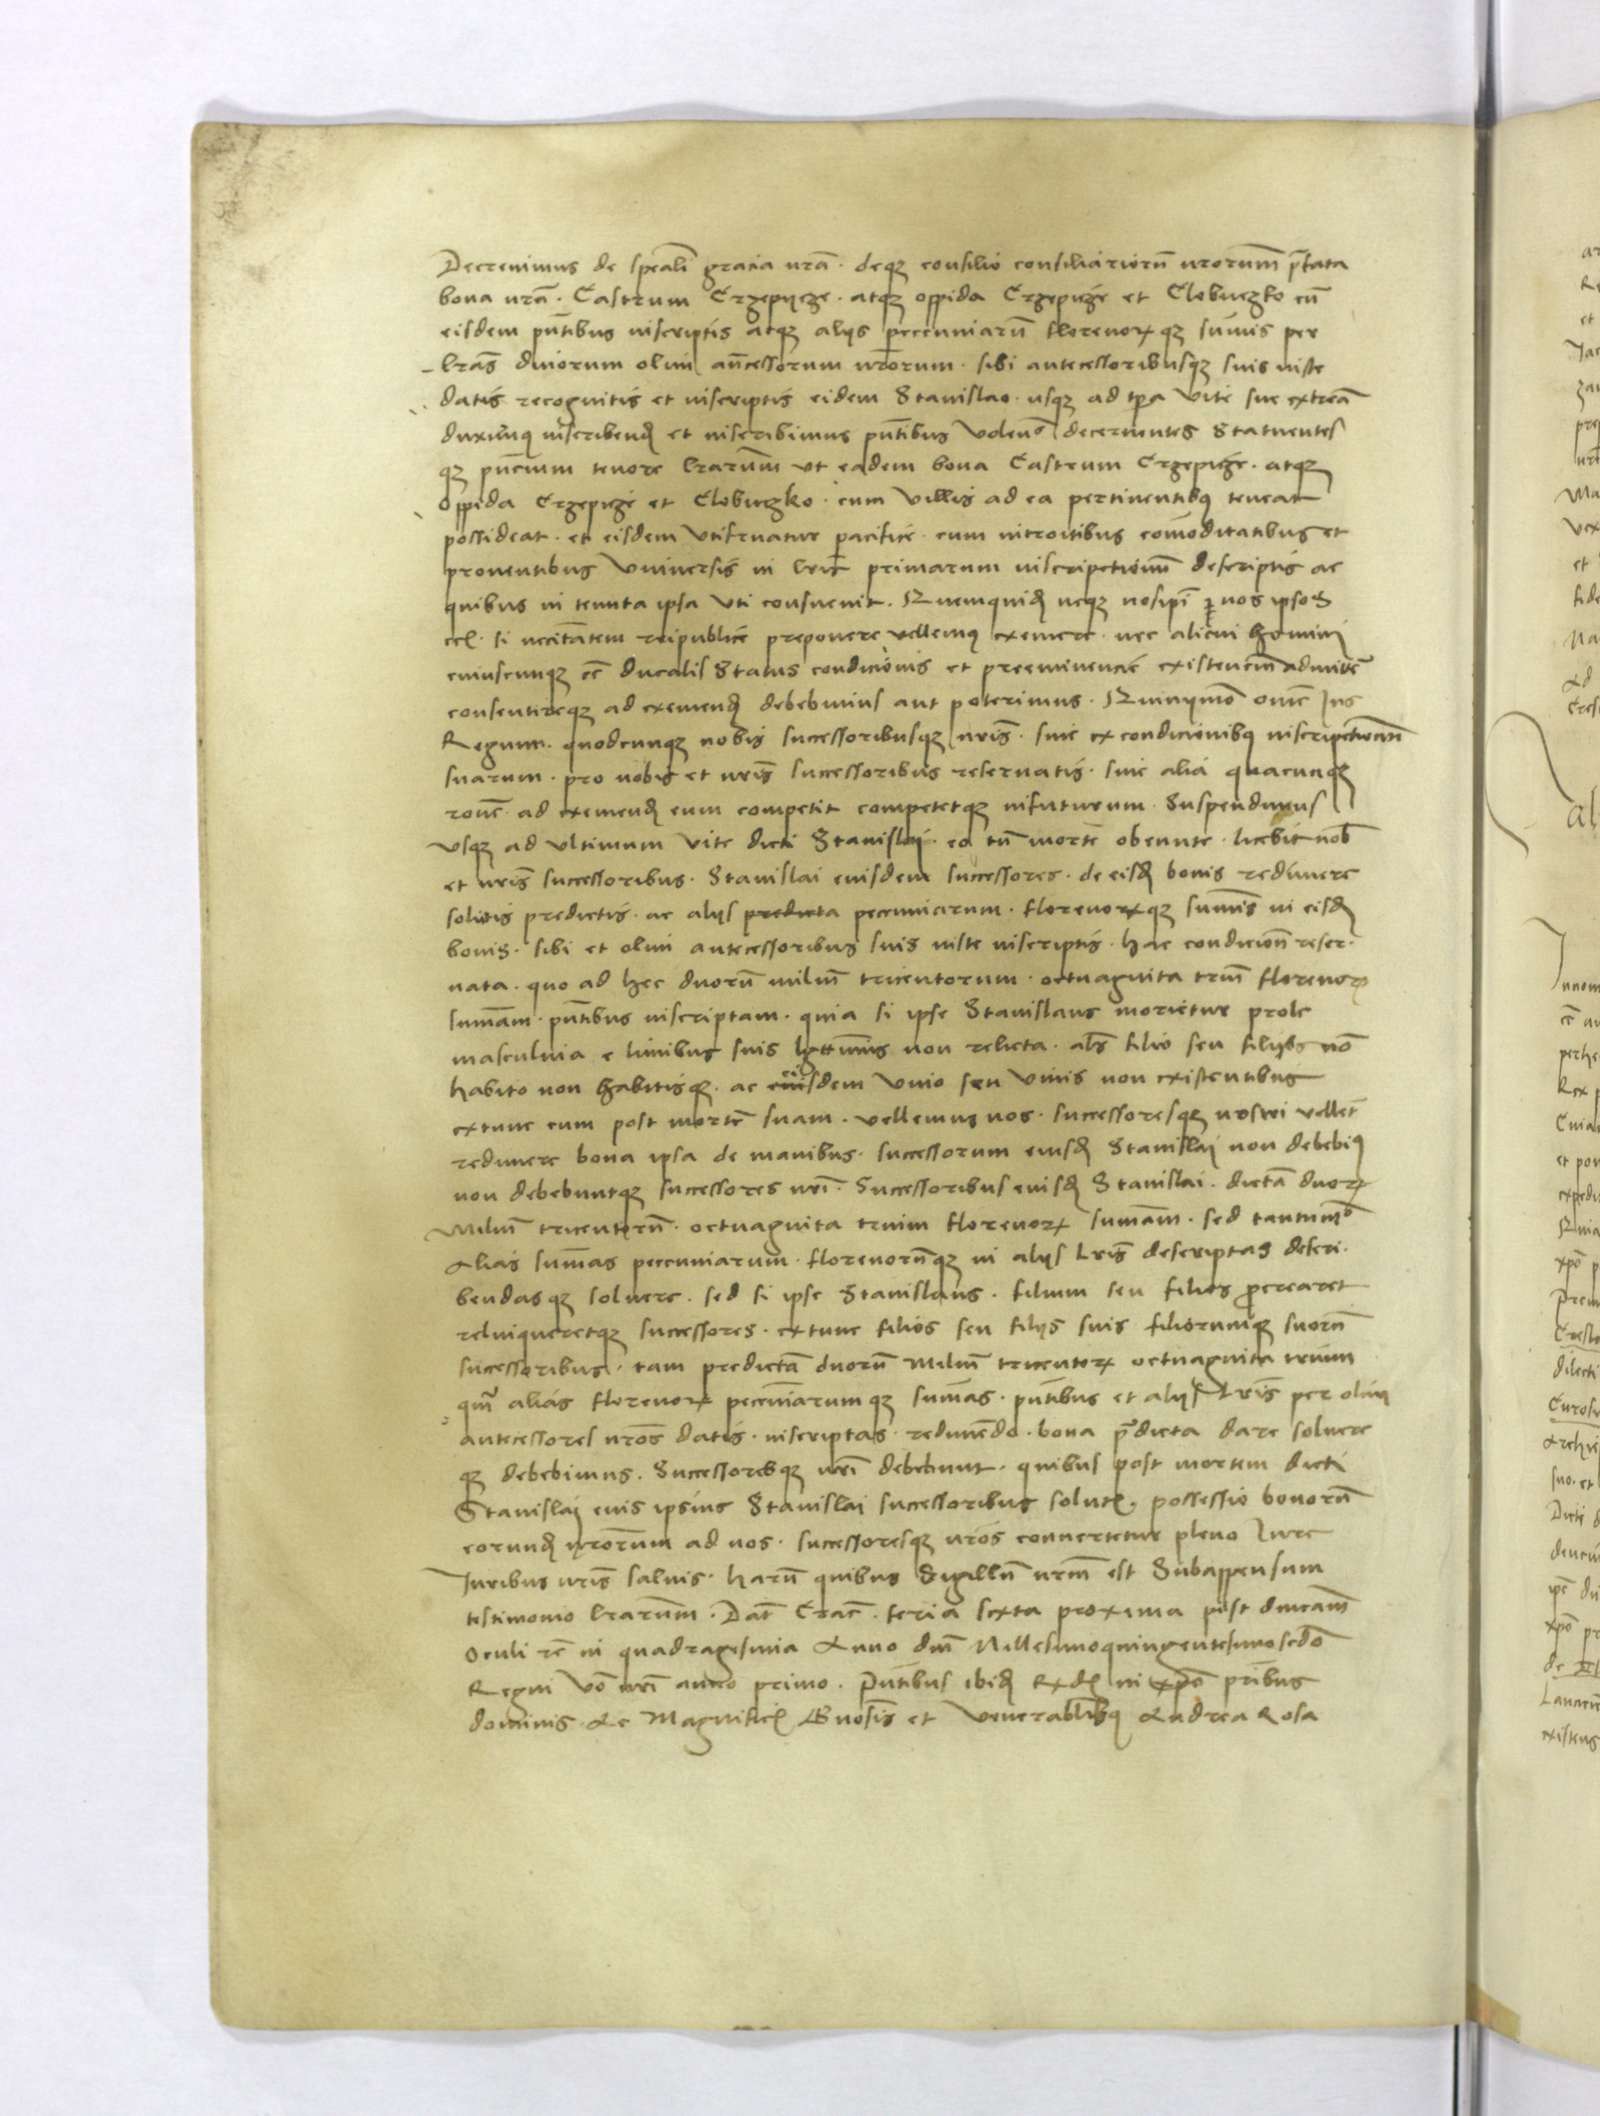 Decrevimus de speāli gracia nrā · deqz consilio consiliariorū nrorum p̄fata
bona nrā · Castrum Crzepycze · atqz oppida Crzepicze et Clobuczko cū
eisdem pn̄tibus inscriptis atqz alijs peccuniarū florenorꝝ qz sum̄is per
lrās divorum olim an̄cessorum nr̄orum · sibi antecessoribusqz suis iuste
datis recognitis et inscriptis eidem Stanislao · usqz ad tp̄a vite sue extrēa
duximꝰ inscribend̄ et inscribimus pn̄tibus volen̄ decernentes Statuentes
qz pn̄cium tenore lrarūm ut eadem bona Castrum Crzepicze · atqz
oppida Crzepicze et Clobuczko · cum villis ad ea pertinentibꝰ teneat
possideat · et eisdem utifruatur pacifice · cum introitibus com̄oditatibus et
proventibus universis in lris primarum inscripctionū descriptis ac
quibus in tenuta ipsa uti consuevit · Quemquid̄ neqz nosipsi ꝑ nos ipsos
ecl̄ · si necitātem reipublice preponere vellemꝰ exemere · nec alicui homini
cuiuscunqz cē ducalis Status condicionis et preeminencie existencīm admittē
consentireqz ad exemend̄ debebimus aut poterimus · Quinymō om̄e Ius
Regium · quodcunqz nobis successoribusqz nrīs · sive ex condicionibꝰ inscripctionū
suarum · pro nobis et nrīs successoribus reservatis · sive alia quacunqz
ronē ad exemend̄ eum competit competetqz infuturum · Suspendimus
usqz ad ultimum vite dicti Stanislai · eo tn̄ mortē obeunte · licebit nob̄
et nrīs successoribus · Stanislai eiusdem successores · de eisd̄ bonis redimere
solutis predictis · ac alijs predicta peccuniarum · florenorꝝqz sum̄is in eisd̄
bonis · sibi et olim antecessoribus suis iuste inscriptis · hac condicion̄ reser·
vata · quo ad hec duorū miliū tricentorum · octuaginta triū florenorꝝ
sum̄am · pn̄tibus inscriptam · quia si ipse Stanislaus morietur prole
masculina e limibus suis lgttimis non relicta · abs̄ filio seu filijs nō
habito non habitisqz · ac eisdem vivo seu vivis non existentibus
extunc cum post mortē suam · vellemus nos · successoresqz nostri vellēt
redimere bona ipsa de manibus · successorum eiusd̄ Stanislai non debebiꝰ
non debebuntqz successores nrī · Successoribus eiusd̄ Stanislai · dictā duorꝝ
Miliū tricentorū · octuaginta trium florenorꝝ sum̄am · sed tantum̄o
Alias sum̄as peccuniarum · florenorūqz in alijs Lrīs descriptas descri·
bendasqz solvere · sed si ipse Stanislaus · filium seu filios procrearet
relinqueretqz successores · extunc filios seu filijs suis filiorumqz suorū
successoribus · tam predictā duorū Miliū tricentorꝝ octuaginta trium
qm̄ alias florenorꝝ peccuniarumqz sum̄as · pn̄tibus et alijs Lrīs per olim
antecessores nrōs datis · inscriptas · redimēdo · bona p̄dicta dare solvere
qz debebimus · Successoresqz nrī debebunt · quibus post mortem dicti
Stanislai eius ipsius Stanislai successoribus solutl̄ · possessio bonorū
eorund̄ nrōrum ad nos · successoresqz nrōs convertetur pleno Iure
Iuribus nrīs salvis · harū quibus sigillū nrm̄ est Subappensum
testimonio lrarūm · Dat̄ Crac̄ · feria sexta proxima post dnicām
Oculi rē in quadragesima Anno dnī Millesimoquingentesimosecdō
Regni Vō nrī anno primo · Pn̄tibus ibid̄ Rxdl̄ in xpō pr̄ibus
dominis · Ac Magnificl̄ Gnosīs et Venerabilibꝰ Andrea Rosa